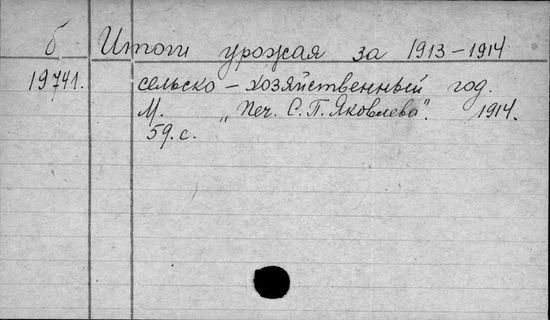 б Итоги урожая за 1913-1914
19741. сельско-хозяйственный год.
М. „Печ. С. П. Яковлева". 1914.
59. с.